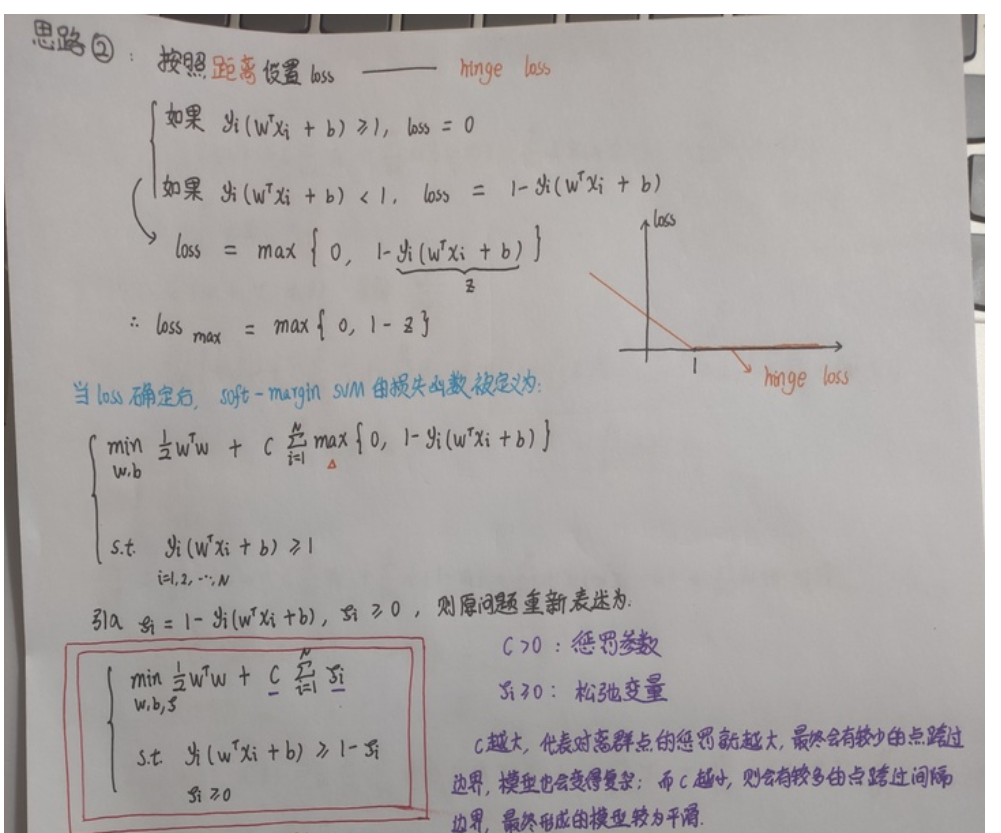 思路②：按照距离设置loss —— hinge loss
如果 yi(wᵀxi + b) ≥ 1, loss = 0
如果 yi(wᵀxi + b) < 1, loss = 1-yi(wᵀxi + b)
loss = max { 0, 1-yi(wᵀxi + b) }
z
∴ loss max = max{ 0, 1-z }
loss
1
hinge loss
当loss确定后, soft-margin SVM的损失函数被定义为:
min ½wᵀw + C Σ max{ 0, 1-yi(wᵀxi+b) }
w,b i=1 N
s.t. yi(wᵀxi + b) ≥ 1
i=1,2,⋯,N
引入 ξi = 1-yi(wᵀxi+b), ξi ≥ 0, 则原问题重新表述为.
min ½wᵀw + C Σ ξi
w,b,ξ i=1 N
s.t. yi(wᵀxi + b) ≥ 1-ξi
ξi ≥ 0
C>0：惩罚参数
ξi≥0：松弛变量
C越大, 代表对离群点的惩罚就越大, 最终会有较少的点跨过
边界, 模型也会变得复杂; 而C越小, 则会有较多的点跨过间隔
边界, 最终形成的模型较为平滑.